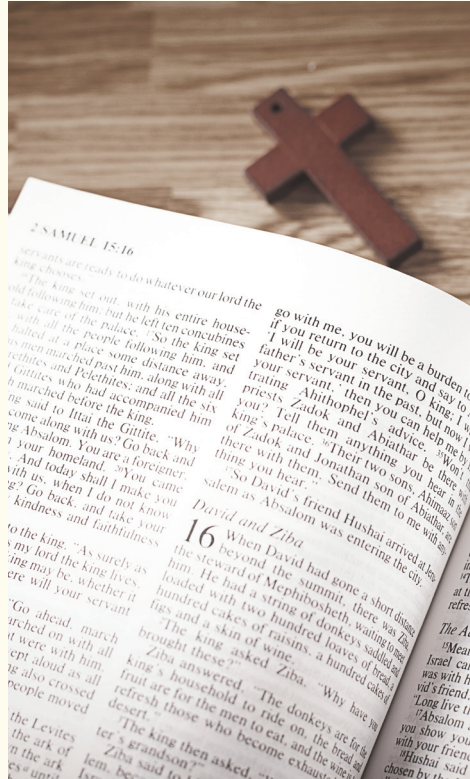 2 SAMUEL 15:16
servants are ready to do whatever our lord the
king chooses."
The king set out, with his entire house-
old following him; but he left ten concubines
take care of the palace. So the king set
with all the people following him, and
halted at a place some distance away.
s men marched past him, along with all
rethites and Pelethites; and all the six
Gittites who had accompanied him
h marched before the king.
ng said to Ittai the Gittite, "Why
come along with us? Go back and
ng Absalom. You are a foreigner,
your homeland. 20You came
And today shall I make you
ith us, when I do not know
g? Go back, and take your
kindness and faithfulness
to the king, "As surely as
s my lord the king lives,
ing may be, whether it
ere will your servant
"Go ahead, march
arched on with all
t were with him
ept aloud as all
ng also crossed
people moved
the Levites
the ark of
n the ark
s until
go with me, you will be a burden to
if you return to the city and say to
'I will be your servant, O king; I w
father's servant in the past, but now I
your servant,' then you can help me b
trating Ahithophel's advice. 35Won't
priests Zadok and Abiathar be there w
you? Tell them anything you hear in
king's palace. 36Their two sons, Ahimaaz son
of Zadok and Jonathan son of Abiathar, are
there with them. Send them to me with any-
thing you hear."
37So David's friend Hushai arrived at Jeru
salem as Absalom was entering the city.
David and Ziba
16 When David had gone a short distance
beyond the summit, there was Ziba,
the steward of Mephibosheth, waiting to meet
him. He had a string of donkeys saddled and
loaded with two hundred loaves of bread, a
hundred cakes of raisins, a hundred cakes of
figs and a skin of wine.
2The king asked Ziba, "Why have you
brought these?"
Ziba answered, "The donkeys are for the
king's household to ride on, the bread and
fruit are for the men to eat, and the wine is
refresh those who become exhausted
desert."
3The king then asked,
ter's grandson?"
Ziba said to
lem, because
at t
refre
The A
15Mean
Israel ca
was with h
vid's friend
"Long live t
17Absalom
you show yo
with your frien
18Hushai said
chosen by th